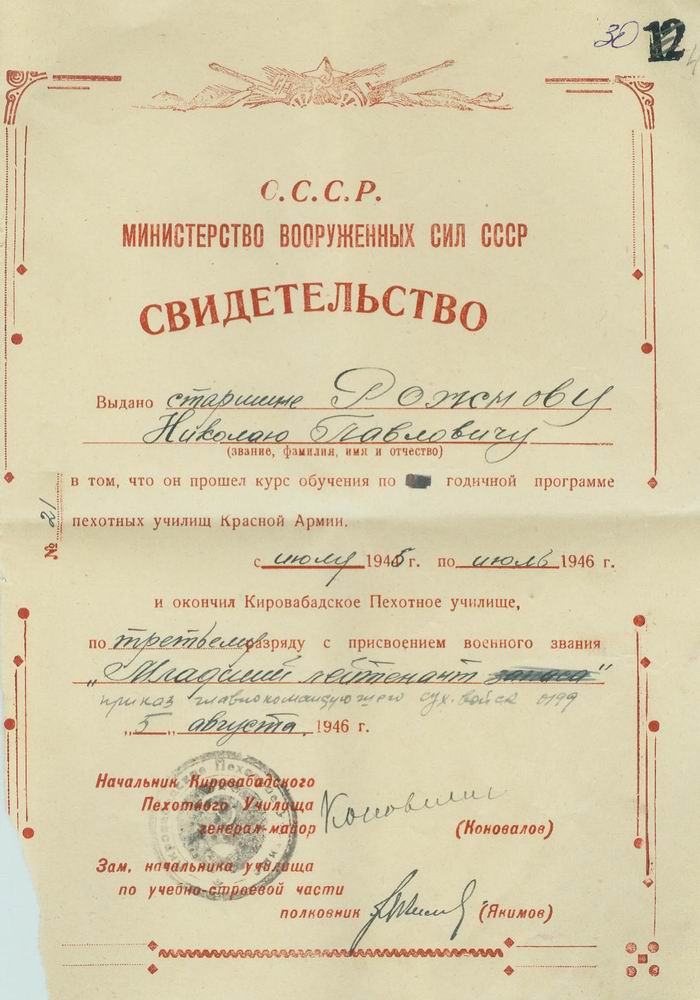 30 12
С.С.С.Р.
МИНИСТЕРСТВО ВООРУЖЕННЫХ СИЛ СССР
СВИДЕТЕЛЬСТВО
Выдано старшине Рожнову
Николаю Павловичу
(звание, фамилия, имя и отчество)
в том, что он прошел курс обучения по годичной программе
пехотных училищ Красной Армии.
№ 21
с июля 1945 г. по июль 1946 г.
и окончил Кировабадское Пехотное училище,
по третьему разряду с присвоением военного звания
„Младший лейтенант запаса"
приказ главнокомандующего сух. войск 099
„5„ августа 1946 г.
Начальник Кировабадского
Пехотного Училища
генерал-майор Коновалов (Коновалов)
Зам. начальника училища
по учебно-строевой части
полковник (Якимов)